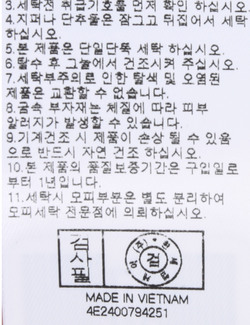 3.세탁전 취급기호를 먼저 확인 하십시오.
4.지퍼나 단추물은 잠그고 뒤집어서 세탁
하십시오.
5.본 제품은 단일단독 세탁 하십시오.
6.탈수 후 그늘에서 건조시켜 주십시오.
7.세탁부주의로 인한 탈색 및 오염된
제품은 교환할 수 없습니다.
8.금속 부자재는 체질에 따라 피부
알러지가 발생할 수 있습니다.
9.기계건조 시 제품이 손상 될 수 있음
으로 반드시 자연 건조 하십시오.
10.본 제품의 품질보증기간은 구입일로
부터 1년입니다.
11.세탁시 모피부분은 별도 분리하여
모피세탁 전문점에 의뢰하십시오.
검사필
검
MADE IN VIETNAM
4E2400794251